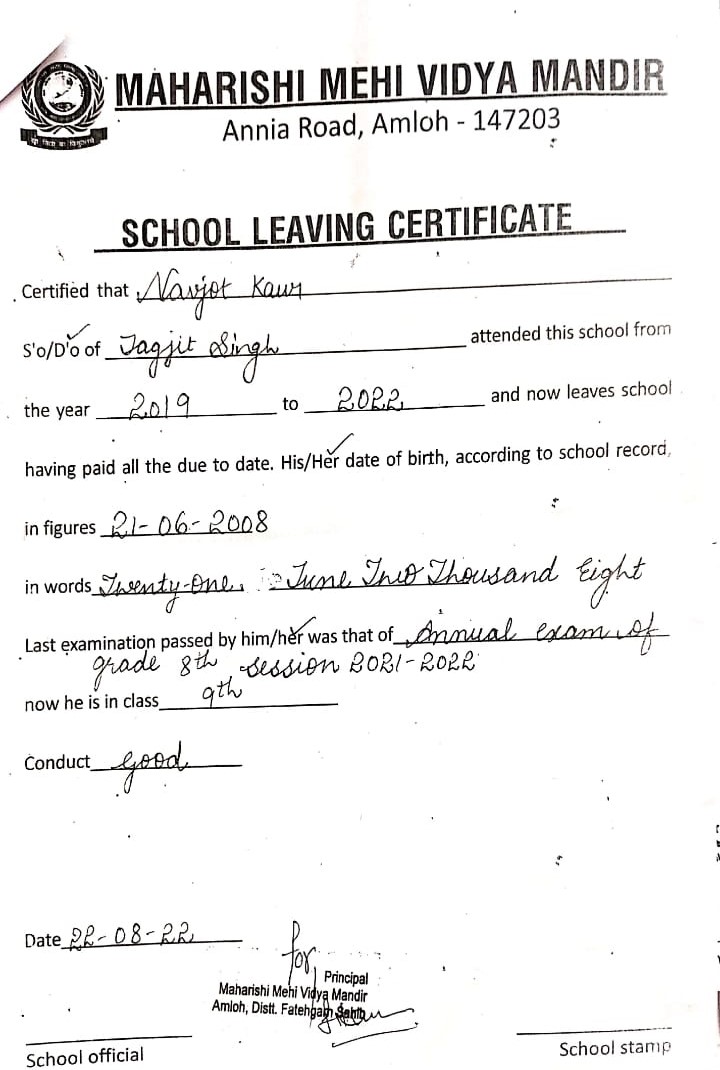 MAHARISHI MEHI VIDYA MANDIR
Annia Road, Amloh - 147203
SCHOOL LEAVING CERTIFICATE
Certified that Navjot Kaur
S'o/D'o of Jagjit Singh attended this school from
the year 2019 to 2022 and now leaves school
having paid all the due to date. His/Her date of birth, according to school record,
in figures 21-06-2008
in words Twenty-One, June Two Thousand Eight
Last examination passed by him/her was that of Annual exam of
grade 8th session 2021-2022
now he is in class 9th
Conduct good
Date 22-08-22
for
Principal
Maharishi Mehi Vidya Mandir
Amloh, Distt. Fatehgarh Sahib
School official
School stamp